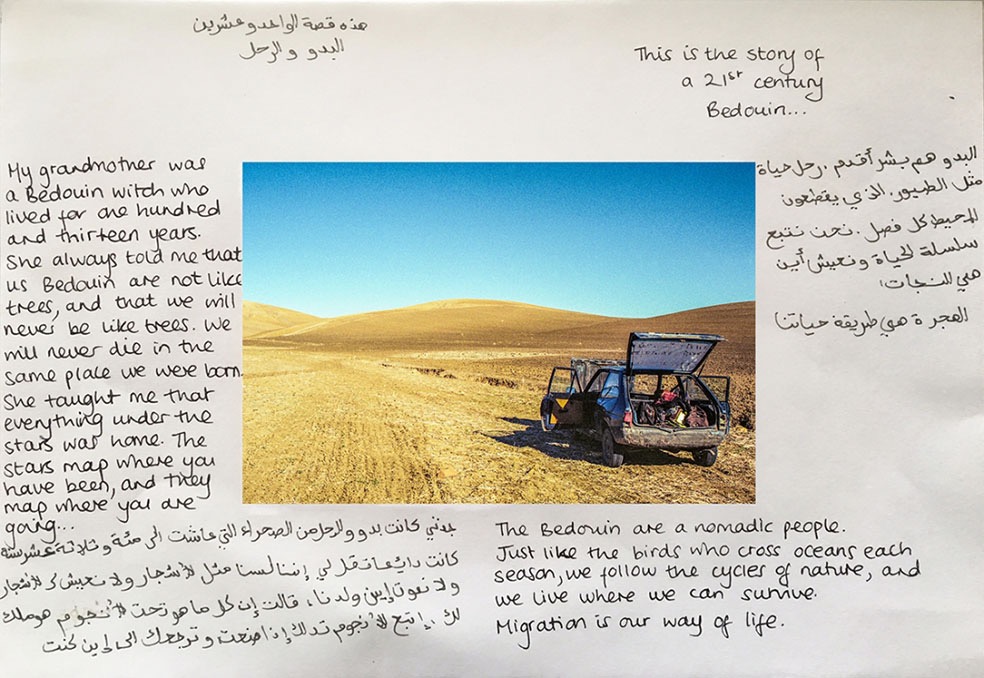 هذه قصة الواحد و عشرين
البدو و الرحل
This is the story of
a 21st century
Bedouin...
My grandmother was
a Bedouin witch who
lived for one hundred
and thirteen years.
She always told me that
us Bedouin are not like
trees, and that we will
never be like trees. We
will never die in the
same place we were born.
She taught me that
everything under the
stars was home. The
stars map where you
have been, and they
map where you are
going...
البدو هم بشر أقدم . رحل حياة
مثل الطيور . الذي يقطعون
المحيط كل فصل . نحن نتبع
سلسلة الحياة و نعيش أين
هي النجات
الهجرة هي طريقة حياتنا
جدتي كانت بدو والرحل من الصحراء التي عاشت الى مئة و ثلاثة عشر سنة
كانت دائما تقل لي إننا لسنا مثل الأشجار ولا نعيش كالأشجار
و لا نموت أين ولدنا ، قالت إن كل ما هو تحت الأنجوم هو ملك
لك . إتبع الأنجوم تدلك إذا ضعت و ترجعك الى أين كنت
The Bedouin are a nomadic people.
Just like the birds who cross oceans each
season, we follow the cycles of nature, and
we live where we can survive.
Migration is our way of life.